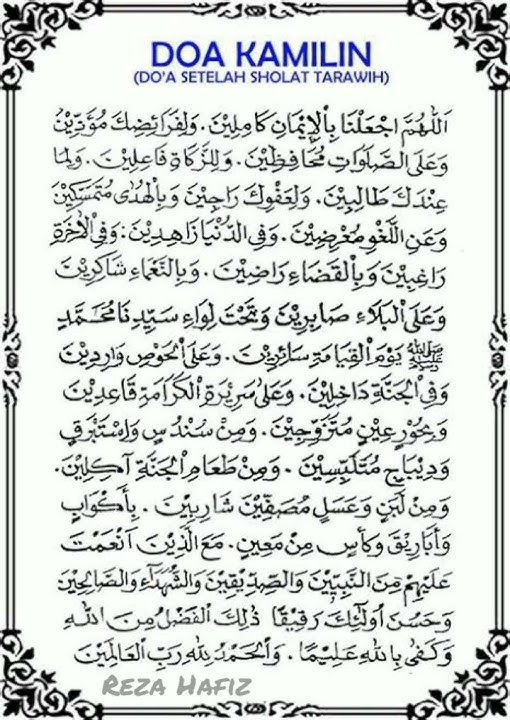 DOA KAMILIN
(DO'A SETELAH SHOLAT TARAWIH)
اَللّٰهُمَّ اجْعَلْنَا بِاْلإِيْمَانِ كَامِلِيْنَ. وَلِفَرَائِضِكَ مُؤَدِّيْنَ
وَعَلَى الصَّلَوَاتِ مُحَافِظِيْنَ. وَلِلزَّكَاةِ فَاعِلِيْنَ. وَلِمَا
عِنْدَكَ طَالِبِيْنَ. وَلِعَفْوِكَ رَاجِيْنَ وَبِالْهُدَى مُتَمَسِّكِيْنَ
وَعَنِ اللَّغْوِ مُعْرِضِيْنَ. وَفِى الدُّنْيَا زَاهِدِيْنَ: وَفِى اْلاٰخِرَةِ
رَاغِبِيْنَ وَبِالْقَضَاءِ رَاضِيْنَ. وَبِالنَّعْمَاءِ شَاكِرِيْنَ
وَعَلَى الْبَلَاءِ صَابِرِيْنَ وَتَحْتَ لِوَاءِ سَيِّدِنَا مُحَمَّدٍ
ﷺ يَوْمَ الْقِيَامَةِ سَائِرِيْنَ. وَعَلَى الْحَوْضِ وَارِدِيْنَ
وَفِى الْجَنَّةِ دَاخِلِيْنَ. وَعَلَى سَرِيْرَةِ الْكَرَامَةِ قَاعِدِيْنَ
وَبِحُوْرٍ عِيْنٍ مُتَزَوِّجِيْنَ. وَمِنْ سُنْدُسٍ وَاِسْتَبْرَقٍ
وَدِيْبَاجٍ مُتَلَبِّسِيْنَ. وَمِنْ طَعَامِ الْجَنَّةِ آكِلِيْنَ.
وَمِنْ لَبَنٍ وَعَسَلٍ مُصَفَّيْنَ شَارِبِيْنَ. بِأَكْوَابٍ
وَأَبَارِيْقَ وَكَأْسٍ مِنْ مَعِيْنٍ. مَعَ الَّذِيْنَ اَنْعَمْتَ
عَلَيْهِمْ مِنَ النَّبِيِّيْنَ وَالصِّدِّيْقِيْنَ وَالشُّهَدَاءِ وَالصَّالِحِيْنَ
وَحَسُنَ اُولٰئِكَ رَفِيْقًا ذٰلِكَ الْفَضْلُ مِنَ اللهِ
وَكَفَى بِاللهِ عَلِيْمًا. وَالْحَمْدُ لِلّٰهِ رَبِّ الْعَالَمِيْنَ
REZA HAFIZ